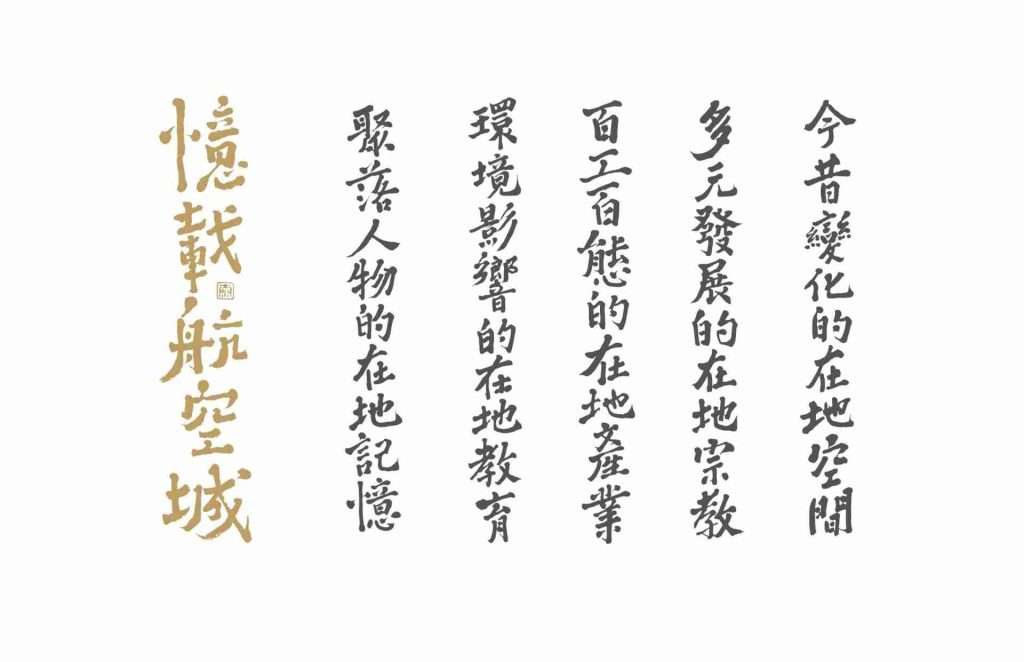 今昔變化的在地空間
多元發展的在地宗教
百工百態的在地產業
環境影響的在地教育
聚落人物的在地記憶
憶載航空城